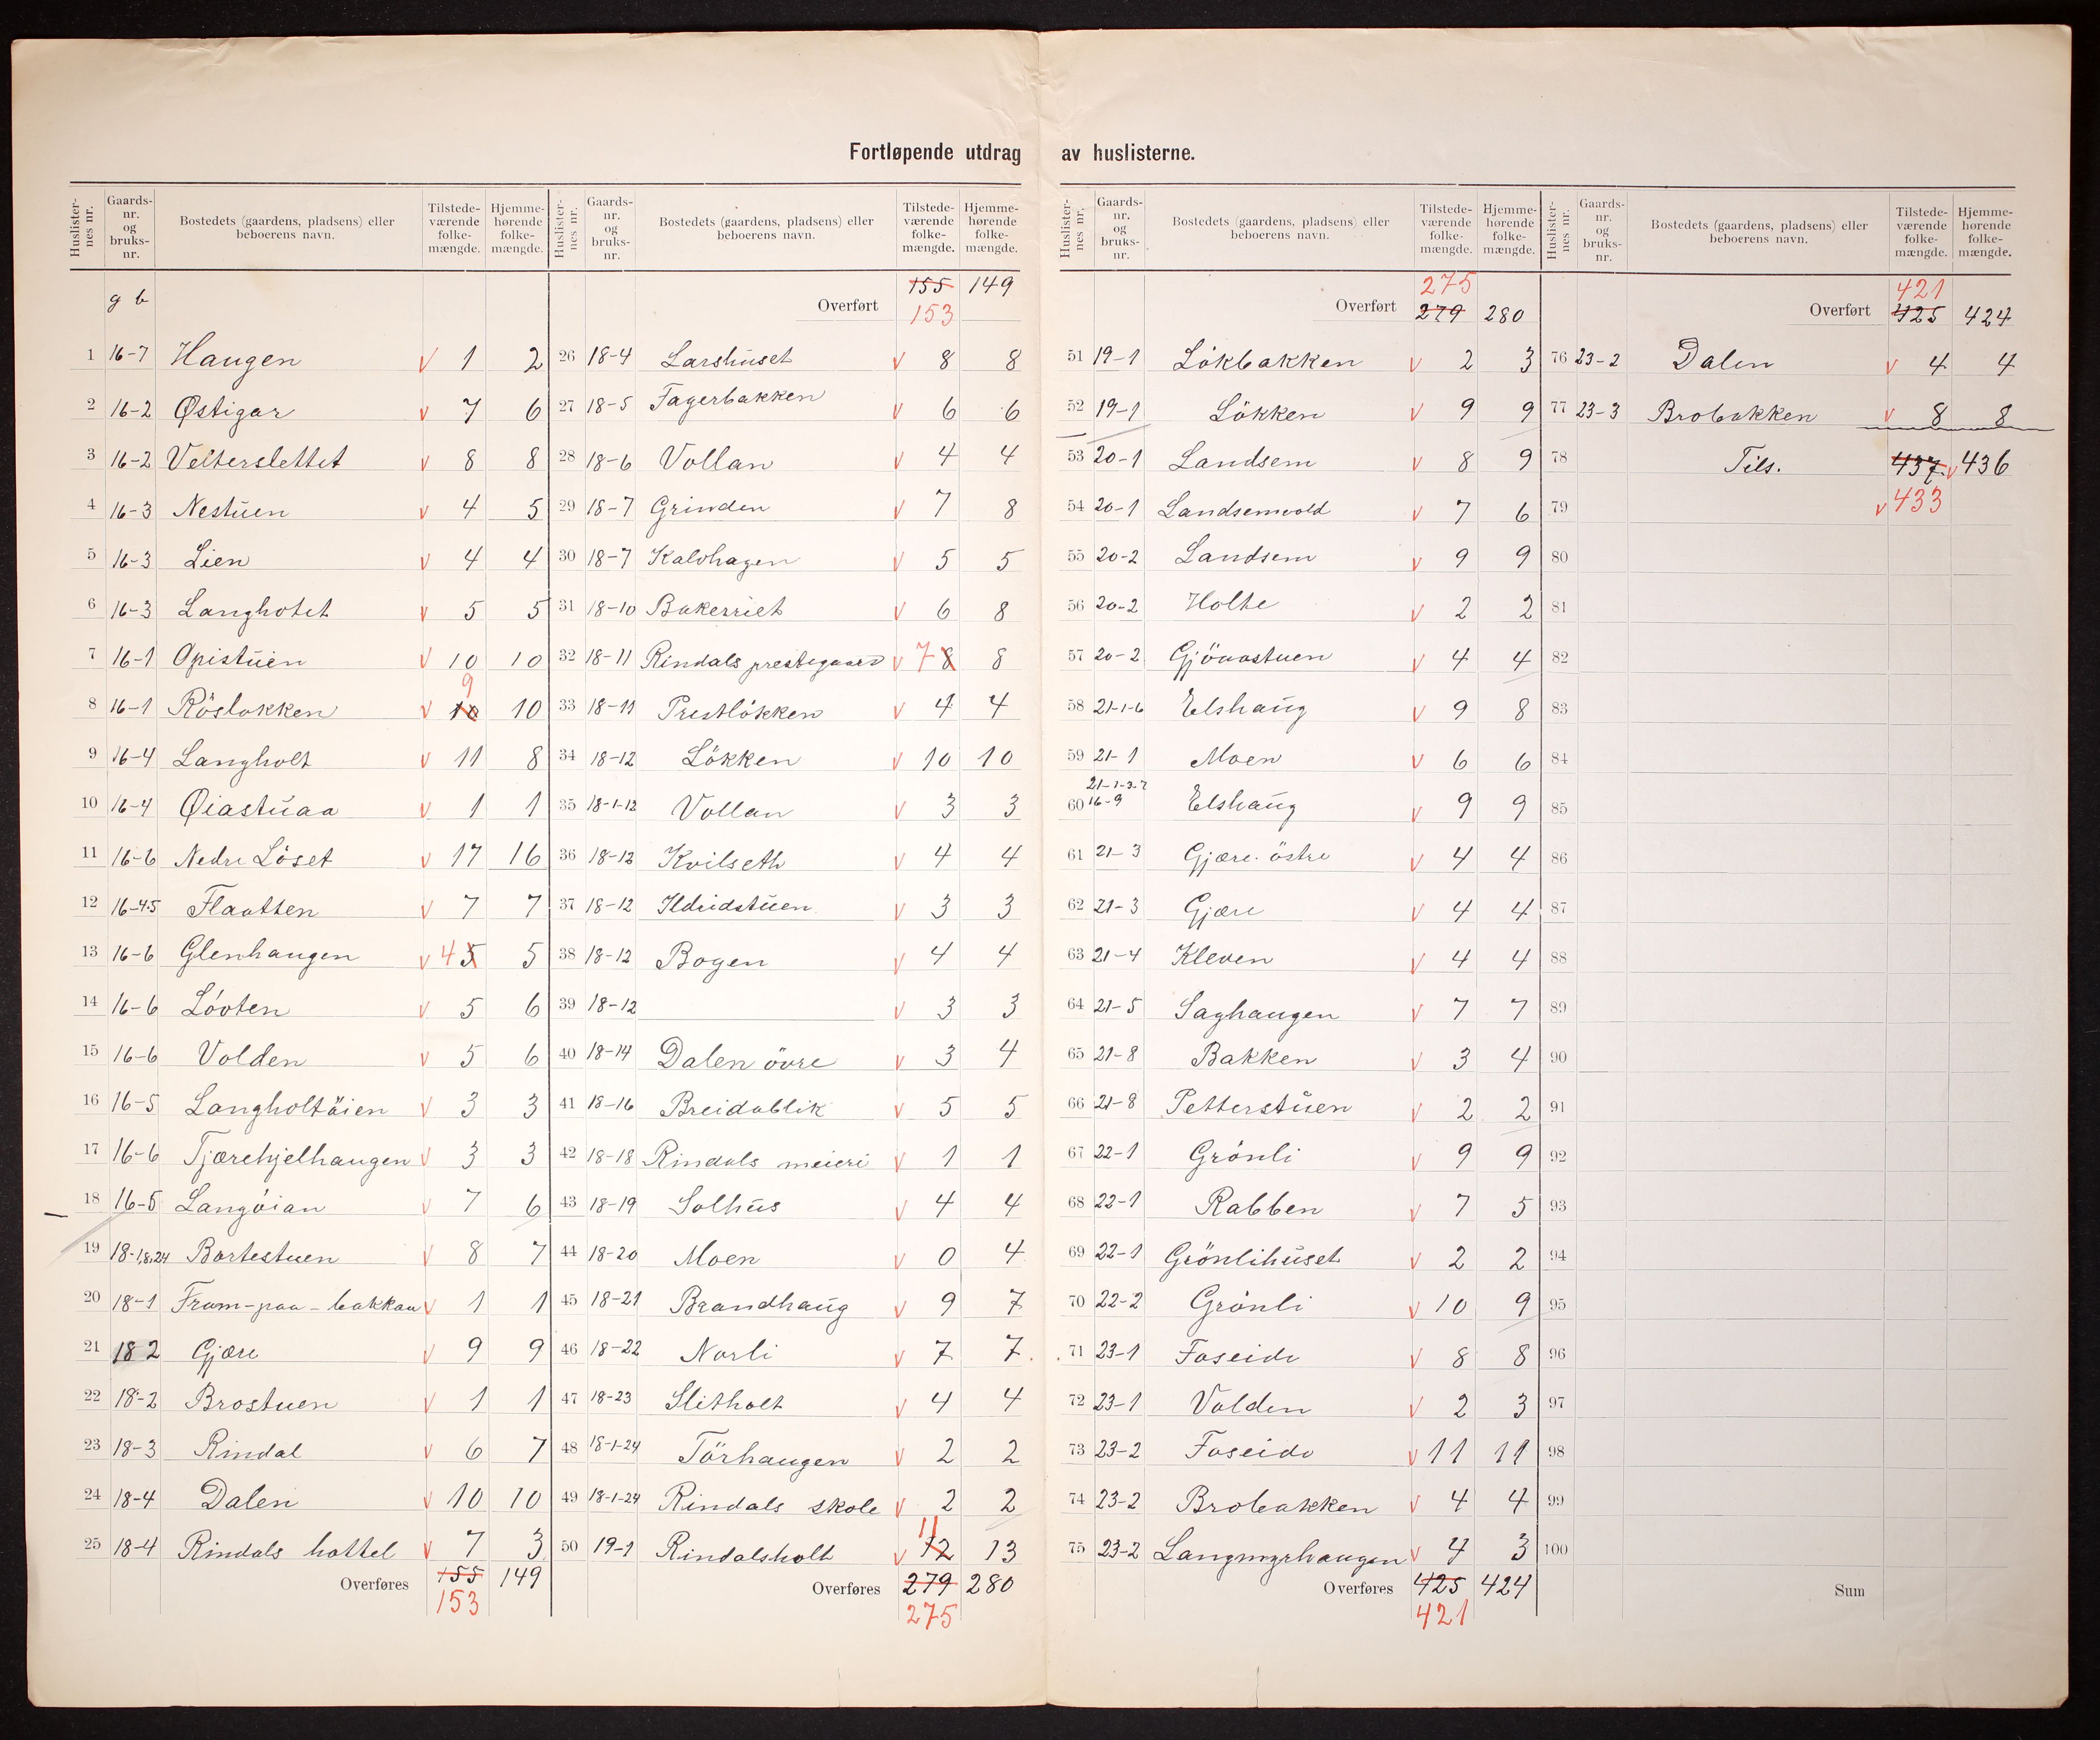 Fortløpende utdrag av huslisterne.
Huslister-nes nr. Gaards-nr. og bruks-nr. Bostedets (gaardens, pladsens) eller beboerens navn. Tilstede-værende folke-mængde. Hjemme-hørende folke-mængde.
g b
1 16-7 Haugen v 1 2
2 16-2 Østigar v 7 6
3 16-2 Velterslettet v 8 8
4 16-3 Nestuen v 4 5
5 16-3 Lien v 4 4
6 16-3 Langhotet v 5 5
7 16-1 Opistuen v 10 10
8 16-1 Rösbakken v 10 9 10
9 16-4 Langholt v 11 8
10 16-4 Øiastuaa v 1 1
11 16-6 Nedre Löset v 17 16
12 16-4.5 Flaatten v 7 7
13 16-6 Glenhaugen v 4 5 5
14 16-6 Löoten v 5 6
15 16-6 Volden v 5 6
16 16-5 Langholtöien v 3 3
17 16-6 Tjærehjelhaugen v 3 3
18 16-5 Langöian v 7 6
19 18-1,8,24 Bortestuen v 8 7
20 18-1 Fram-paa-bakkan v 1 1
21 18 2 Gjære v 9 9
22 18-2 Brostuen v 1 1
23 18-3 Rindal v 6 7
24 18-4 Dalen v 10 10
25 18-4 Rindals hottel v 7 3
Overføres 155 149
153
Huslister-nes nr. Gaards-nr. og bruks-nr. Bostedets (gaardens, pladsens) eller beboerens navn. Tilstede-værende folke-mængde. Hjemme-hørende folke-mængde.
Overført 155 149
153
26 18-4 Larshuset v 8 8
27 18-5 Fagerbakken v 6 6
28 18-6 Vollan v 4 4
29 18-7 Grinden v 7 8
30 18-7 Kalvhagen v 5 5
31 18-10 Bakerriet v 6 8
32 18-11 Rindals prestegaard v 7 8 8
33 18-11 Prestlökken v 4 4
34 18-12 Lökken v 10 10
35 18-1-12 Vollan v 3 3
36 18-12 Kvilseth v 4 4
37 18-12 Ildridstuen v 3 3
38 18-12 Bogen v 4 4
39 18-12 v 3 3
40 18-14 Dalen övre v 3 4
41 18-16 Breidablik v 5 5
42 18-18 Rindals meieri v 1 1
43 18-19 Solhus v 4 4
44 18-20 Moen v 0 4
45 18-21 Brandhaug v 9 7
46 18-22 Norli v 7 7
47 18-23 Slitholt v 4 4
48 18-1-24 Törhaugen v 2 2
49 18-1-24 Rindals skole v 2 2
50 19-1 Rindalsholt v 12 11 13
Overføres 279 280
275
Huslister-nes nr. Gaards-nr. og bruks-nr. Bostedets (gaardens, pladsens) eller beboerens navn. Tilstede-værende folke-mængde. Hjemme-hørende folke-mængde.
275
Overført 279 280
51 19-1 Lökbakken v 2 3
52 19-1 Lökken v 9 9
53 20-1 Landsem v 8 9
54 20-1 Landsemvold v 7 6
55 20-2 Landsem v 9 9
56 20-2 Holte v 2 2
57 20-2 Gjönastuen v 4 4
58 21-1-6 Elshaug v 9 8
59 21-1 Moen v 6 6
60 21-1-3-7 16-9 Elshaug v 9 9
61 21-3 Gjære östre v 4 4
62 21-3 Gjære v 4 4
63 21-4 Kleven v 4 4
64 21-5 Saghaugen v 7 7
65 21-8 Bakken v 3 4
66 21-8 Petterstuen v 2 2
67 22-1 Grönli v 9 9
68 22-1 Rabben v 7 5
69 22-1 Grönlihuset v 2 2
70 22-2 Grönli v 10 9
71 23-1 Foseide v 8 8
72 23-1 Volden v 2 3
73 23-2 Foseide v 11 11
74 23-2 Brobakken v 4 4
75 23-2 Langmyrhaugen v 4 3
Overføres 425 424
421
Huslister-nes nr. Gaards-nr. og bruks-nr. Bostedets (gaardens, pladsens) eller beboerens navn. Tilstede-værende folke-mængde. Hjemme-hørende folke-mængde.
421
Overført 425 424
76 23-2 Dalen v 4 4
77 23-3 Brobakken v 8 8
78 Tils. 437 v 436
79 v 433
80
81
82
83
84
85
86
87
88
89
90
91
92
93
94
95
96
97
98
99
100
Sum